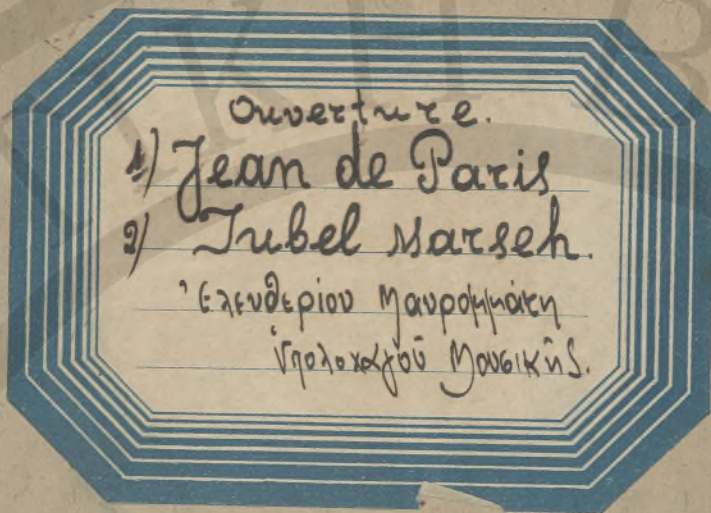 Ouverture.
1) Jean de Paris
2) Jubel Marsch.
Ἐλευθερίου Μαυρομμάτη
ὑπολοχαγοῦ Μουσικῆς.